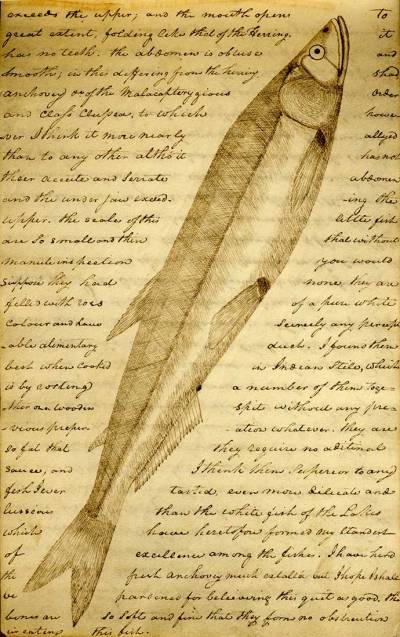 exceeds the upper; and the mouth opens to
great extent, folding like that of the Herring. it
has no teeth. the abdomen is obtuse and
smooth; in this differing from the herring, shad
anchovey &c of the Malacapterygious Order
and Class Clupea, to which howe
ver I think it more nearly allyed
than to any other altho' it has not
their accute and serrate abdomen
and the under jaw exceed- -ing the
upper. the scales of this little fish
are so small and thin that without
manute inspection you would
suppose they had none. they are
filled with roes of a pure white
colour and have scercely any percept
able alementary duct. I found them
best when cooked in Indian stile, which
is by roasting a number of them toge-
ther on a wooden spit without any pre-
vious preper- -ation whatever. they are
so fat that they require no aditional
sauce, and I think them superior to any
fish I ever tasted, even more dilicate and
lussious than the white fish of the Lakes
which have heretofore formed my standart
of excellence among the fishes. I have herd
the fresh anchovey much extolled but I hope I shall
be pardoned for beleiving this quit as good. the
bones are so soft and fine that they form no obstruction
in eating this fish.